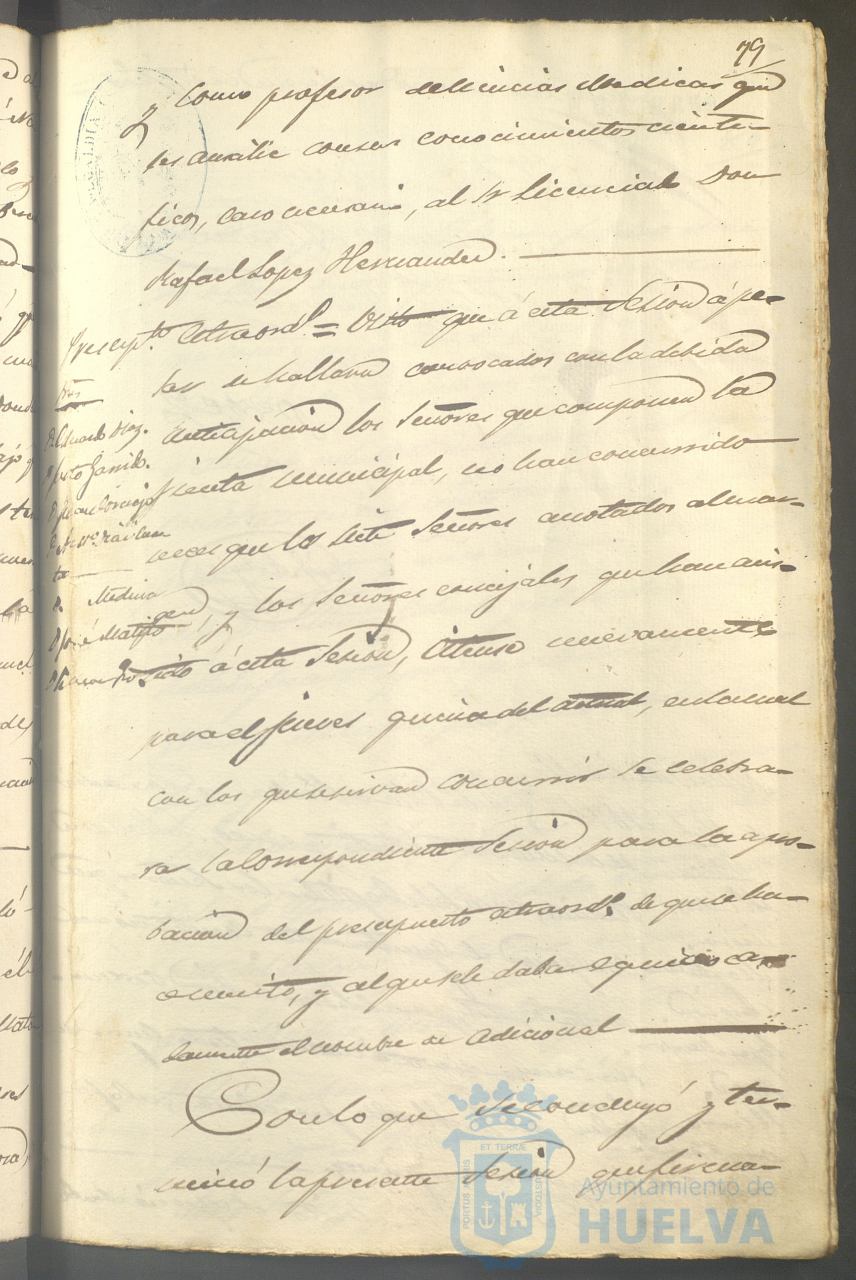 79
y como profesor de Ciencias Medicas que
les auxilie con sus conocimientos cienti-
ficos, caso necesario, al Sr Licenciado Don
Rafael Lopez Hernandez.
Presupto. Estraordo. = Visto que á esta Sesion á pe-
sar de hallarse convocados con la debida
anticipacion los Señores que componen la
Junta Municipal, no han concurrido
mas que los siete Señores anotados al mar-
gen, y los Señores concejales que han asis-
tido á esta Sesion, Citense nuevamente
para el Jueves quince del actual, en la cual
con los que se sirvan concurrir se celebra-
ra la Correspondiente Sesion para la apro-
bacion del presupuesto estraordo. de que se ha-
ce merito, y al que se le daba equivoca-
damente el nombre de Adicional
Con lo que se concluyó y ter-
minó la presente Sesion que firma-
Sres
D. Eduardo Diaz.
D. Justo Garrido.
D. Juan Cornejo
Medina
D. José Matito
ALCALDIA
PORTUS MARIS
ET TERRÆ
CUSTODIA
Ayuntamiento de
HUELVA